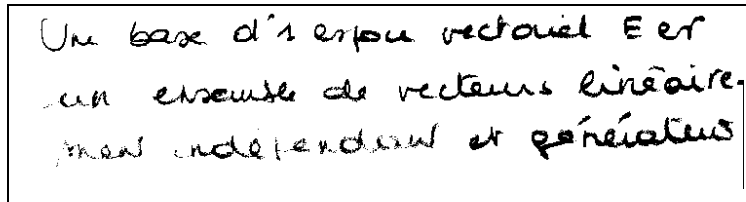 Une base d'1 espace vectoriel E est
un ensemble de vecteurs linéaire-
ment indépendants et générateurs